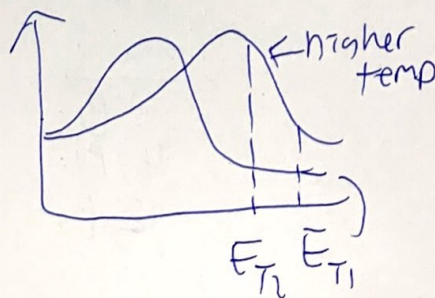 higher
temp
E_T2 E_T1